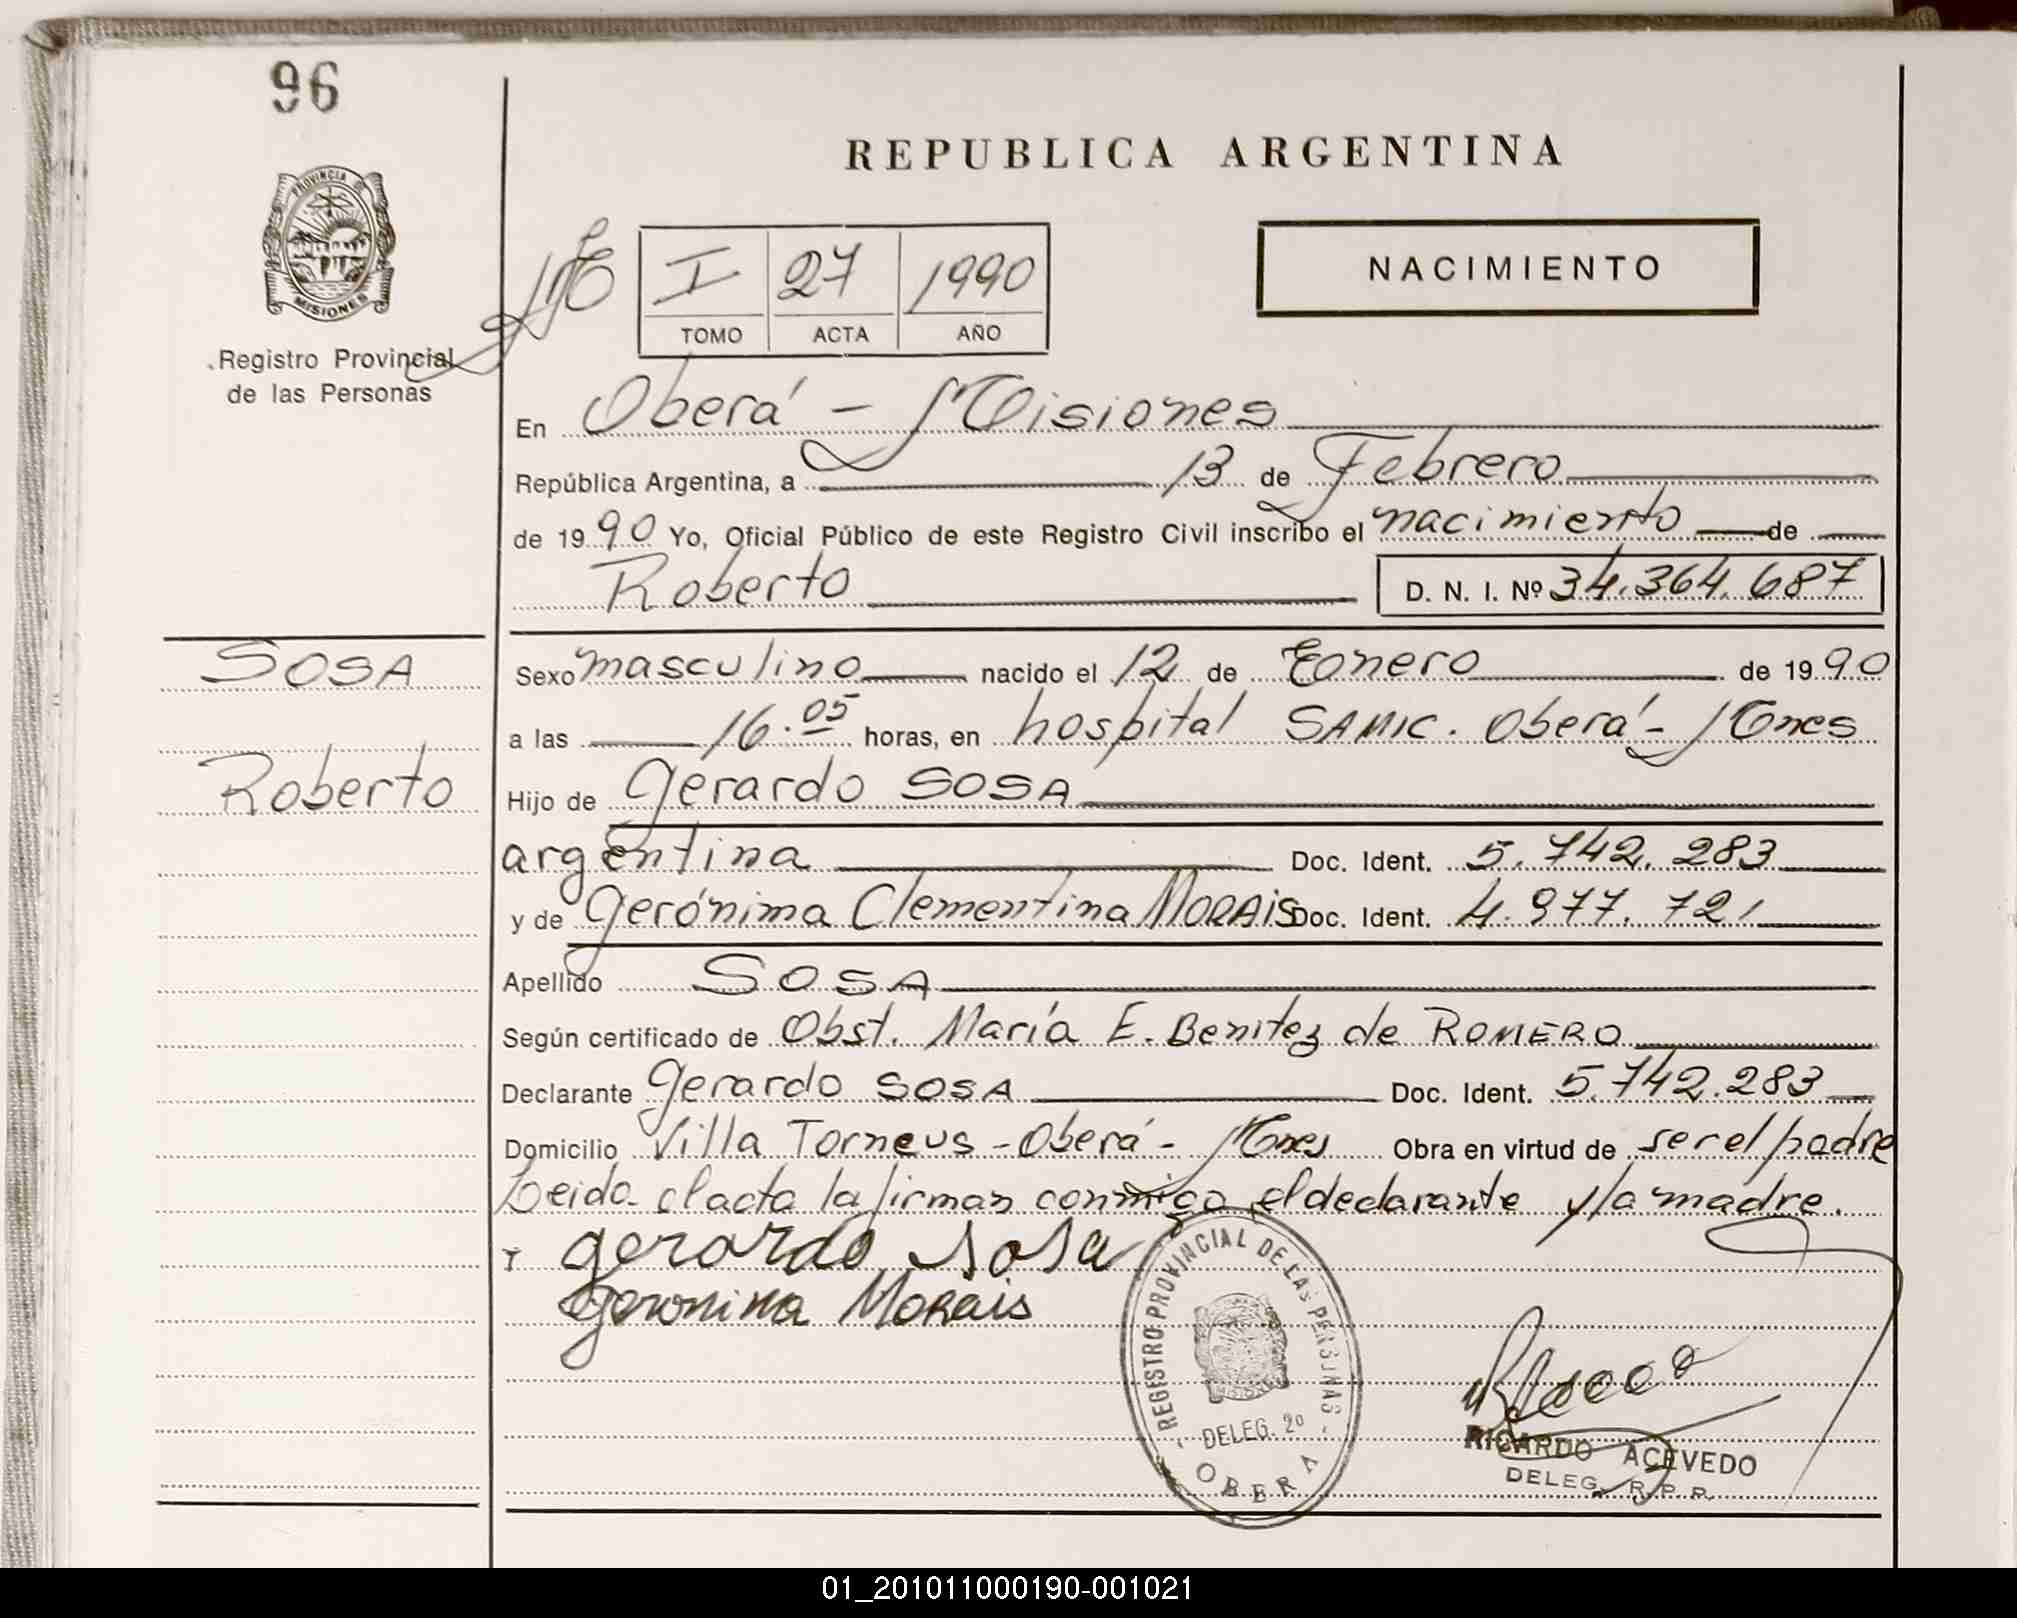 96
REPUBLICA ARGENTINA
PROVINCIA DE
MISIONES
Registro Provincial
de las Personas
I 27 1990
TOMO ACTA AÑO
NACIMIENTO
En Oberá - Misiones
República Argentina, a 13 de Febrero
de 1990 Yo, Oficial Público de este Registro Civil inscribo el nacimiento de
Roberto D. N. I. Nº 34.364.687
SOSA
Roberto
Sexo masculino nacido el 12 de Enero de 1990
a las 16.05 horas, en hospital SAMIC. Oberá - Mnes
Hijo de Gerardo SOSA
argentina Doc. Ident. 5.742.283
y de Gerónima Clementina MORAIS Doc. Ident. 4.977.721
Apellido SOSA
Según certificado de Obst. María E. Benitez de ROMERO
Declarante Gerardo SOSA Doc. Ident. 5.742.283
Domicilio Villa Torneus - Oberá - Mnes Obra en virtud de ser el padre
Leida el acta la firman conmigo el declarante y la madre.
gerardo sosa
Geronima Morais
REGISTRO PROVINCIAL DE LAS PERSONAS
DELEG. 2º
OBERA
RICARDO ACEVEDO
DELEG. R. P. P.
01_201011000190-001021